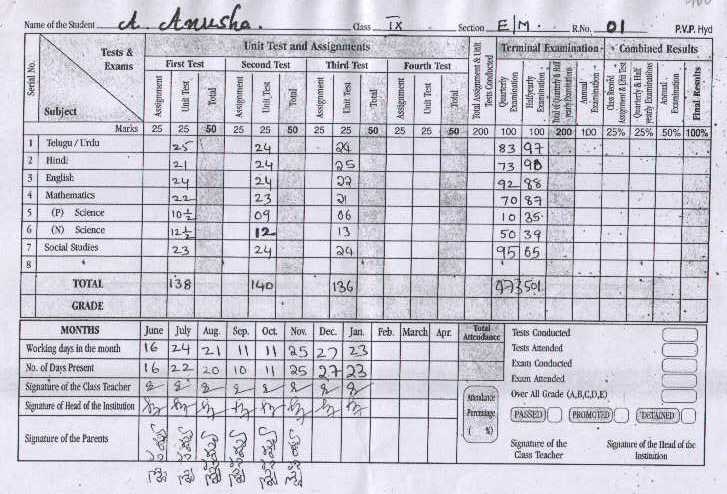 Name of the Student A. Anusha. Class IX Section E/M. R.No. 01 P.V.P. Hyd
Serial No. Tests & Exams Subject Unit Test and Assignments Total Assignment & Unit Tests Conducted Terminal Examination Combined Results
First Test Second Test Third Test Fourth Test Quarterly Examination Halfyearly Examination Total of Quarterly & Half yearly Examinations Annual Examination Class Record Assignment & Unit Test Quarterly & Half yearly Examinations Annual Examination Final Results
Assignment Unit Test Total Assignment Unit Test Total Assignment Unit Test Total Assignment Unit Test Total
Marks 25 25 50 25 25 50 25 25 50 25 25 50 200 100 100 200 100 25% 25% 50% 100%
1 Telugu / Urdu 25 24 24 83 97
2 Hindi 21 24 25 73 90
3 English 24 24 22 92 88
4 Mathematics 22 23 21 70 87
5 (P) Science 10½ 09 06 10 35
6 (N) Science 12½ 12 13 50 39
7 Social Studies 23 24 24 95 65
8
TOTAL 138 140 136 473 501
GRADE
MONTHS June July Aug. Sep. Oct. Nov. Dec. Jan. Feb. March Apr. Total Attendance
Working days in the month 16 24 21 11 11 25 27 23
No. of Days Present 16 22 20 10 11 25 27 23
Signature of the Class Teacher
Signature of Head of the Institution
Signature of the Parents
Attendance Percentage ( %)
Tests Conducted
Tests Attended
Exam Conducted
Exam Attended
Over All Grade (A,B,C,D,E)
PASSED PROMOTED DETAINED
Signature of the Class Teacher Signature of the Head of the Institution